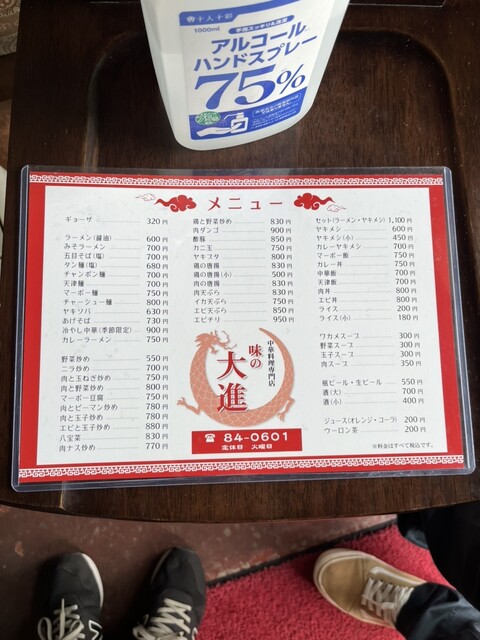 十人十彩
1000ml
手指スッキリ&清潔
アルコール
ハンドスプレー
75%
メニュー
ギョーザ 320円
ラーメン(醤油) 600円
みそラーメン 700円
五目そば(塩) 700円
タン麺(塩) 680円
チャンポン麺 700円
天津麺 700円
マーボー麺 750円
チャーシュー麺 800円
ヤキソバ 630円
あげそば 730円
冷やし中華(季節限定) 900円
カレーラーメン 750円
野菜炒め 550円
ニラ炒め 700円
肉と玉ねぎ炒め 750円
肉と野菜炒め 800円
マーボー豆腐 750円
肉とピーマン炒め 780円
肉と玉子炒め 780円
エビと玉子炒め 880円
八宝菜 830円
肉ナス炒め 770円
鶏と野菜炒め 830円
肉ダンゴ 900円
酢豚 850円
カニ玉 750円
ヤキブタ 800円
鶏の唐揚 830円
鶏の唐揚(小) 500円
肉の唐揚 830円
肉天ぷら 830円
イカ天ぷら 750円
エビ天ぷら 850円
エビチリ 950円
中華料理専門店
味の
大進
☎ 84-0601
定休日 火曜日
セット(ラーメン・ヤキメン) 1,100円
ヤキメン 600円
ヤキメン(小) 450円
カレーヤキメン 700円
マーボー飯 750円
カレー丼 750円
中華飯 700円
天津飯 700円
肉丼 800円
エビ丼 800円
ライス 200円
ライス(小) 180円
ワカメスープ 300円
野菜スープ 300円
玉子スープ 300円
肉スープ 350円
瓶ビール・生ビール 550円
酒(大) 700円
酒(小) 400円
ジュース(オレンジ・コーラ) 200円
ウーロン茶 200円
※料金はすべて税込です。